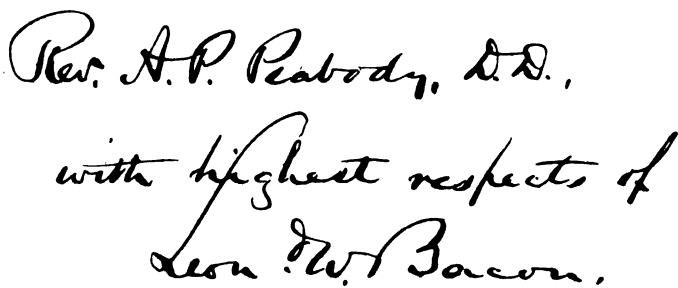 Rev. A. P. Peabody, D.D.,
with highest respects of
Leon. W. Bacon.